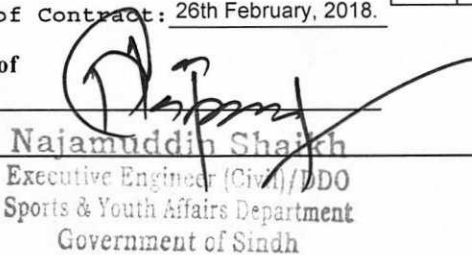 of Contract: 26th February, 2018.
of
Najamuddin Shaikh
Executive Engineer (Civil)/DDO
Sports & Youth Affairs Department
Government of Sindh